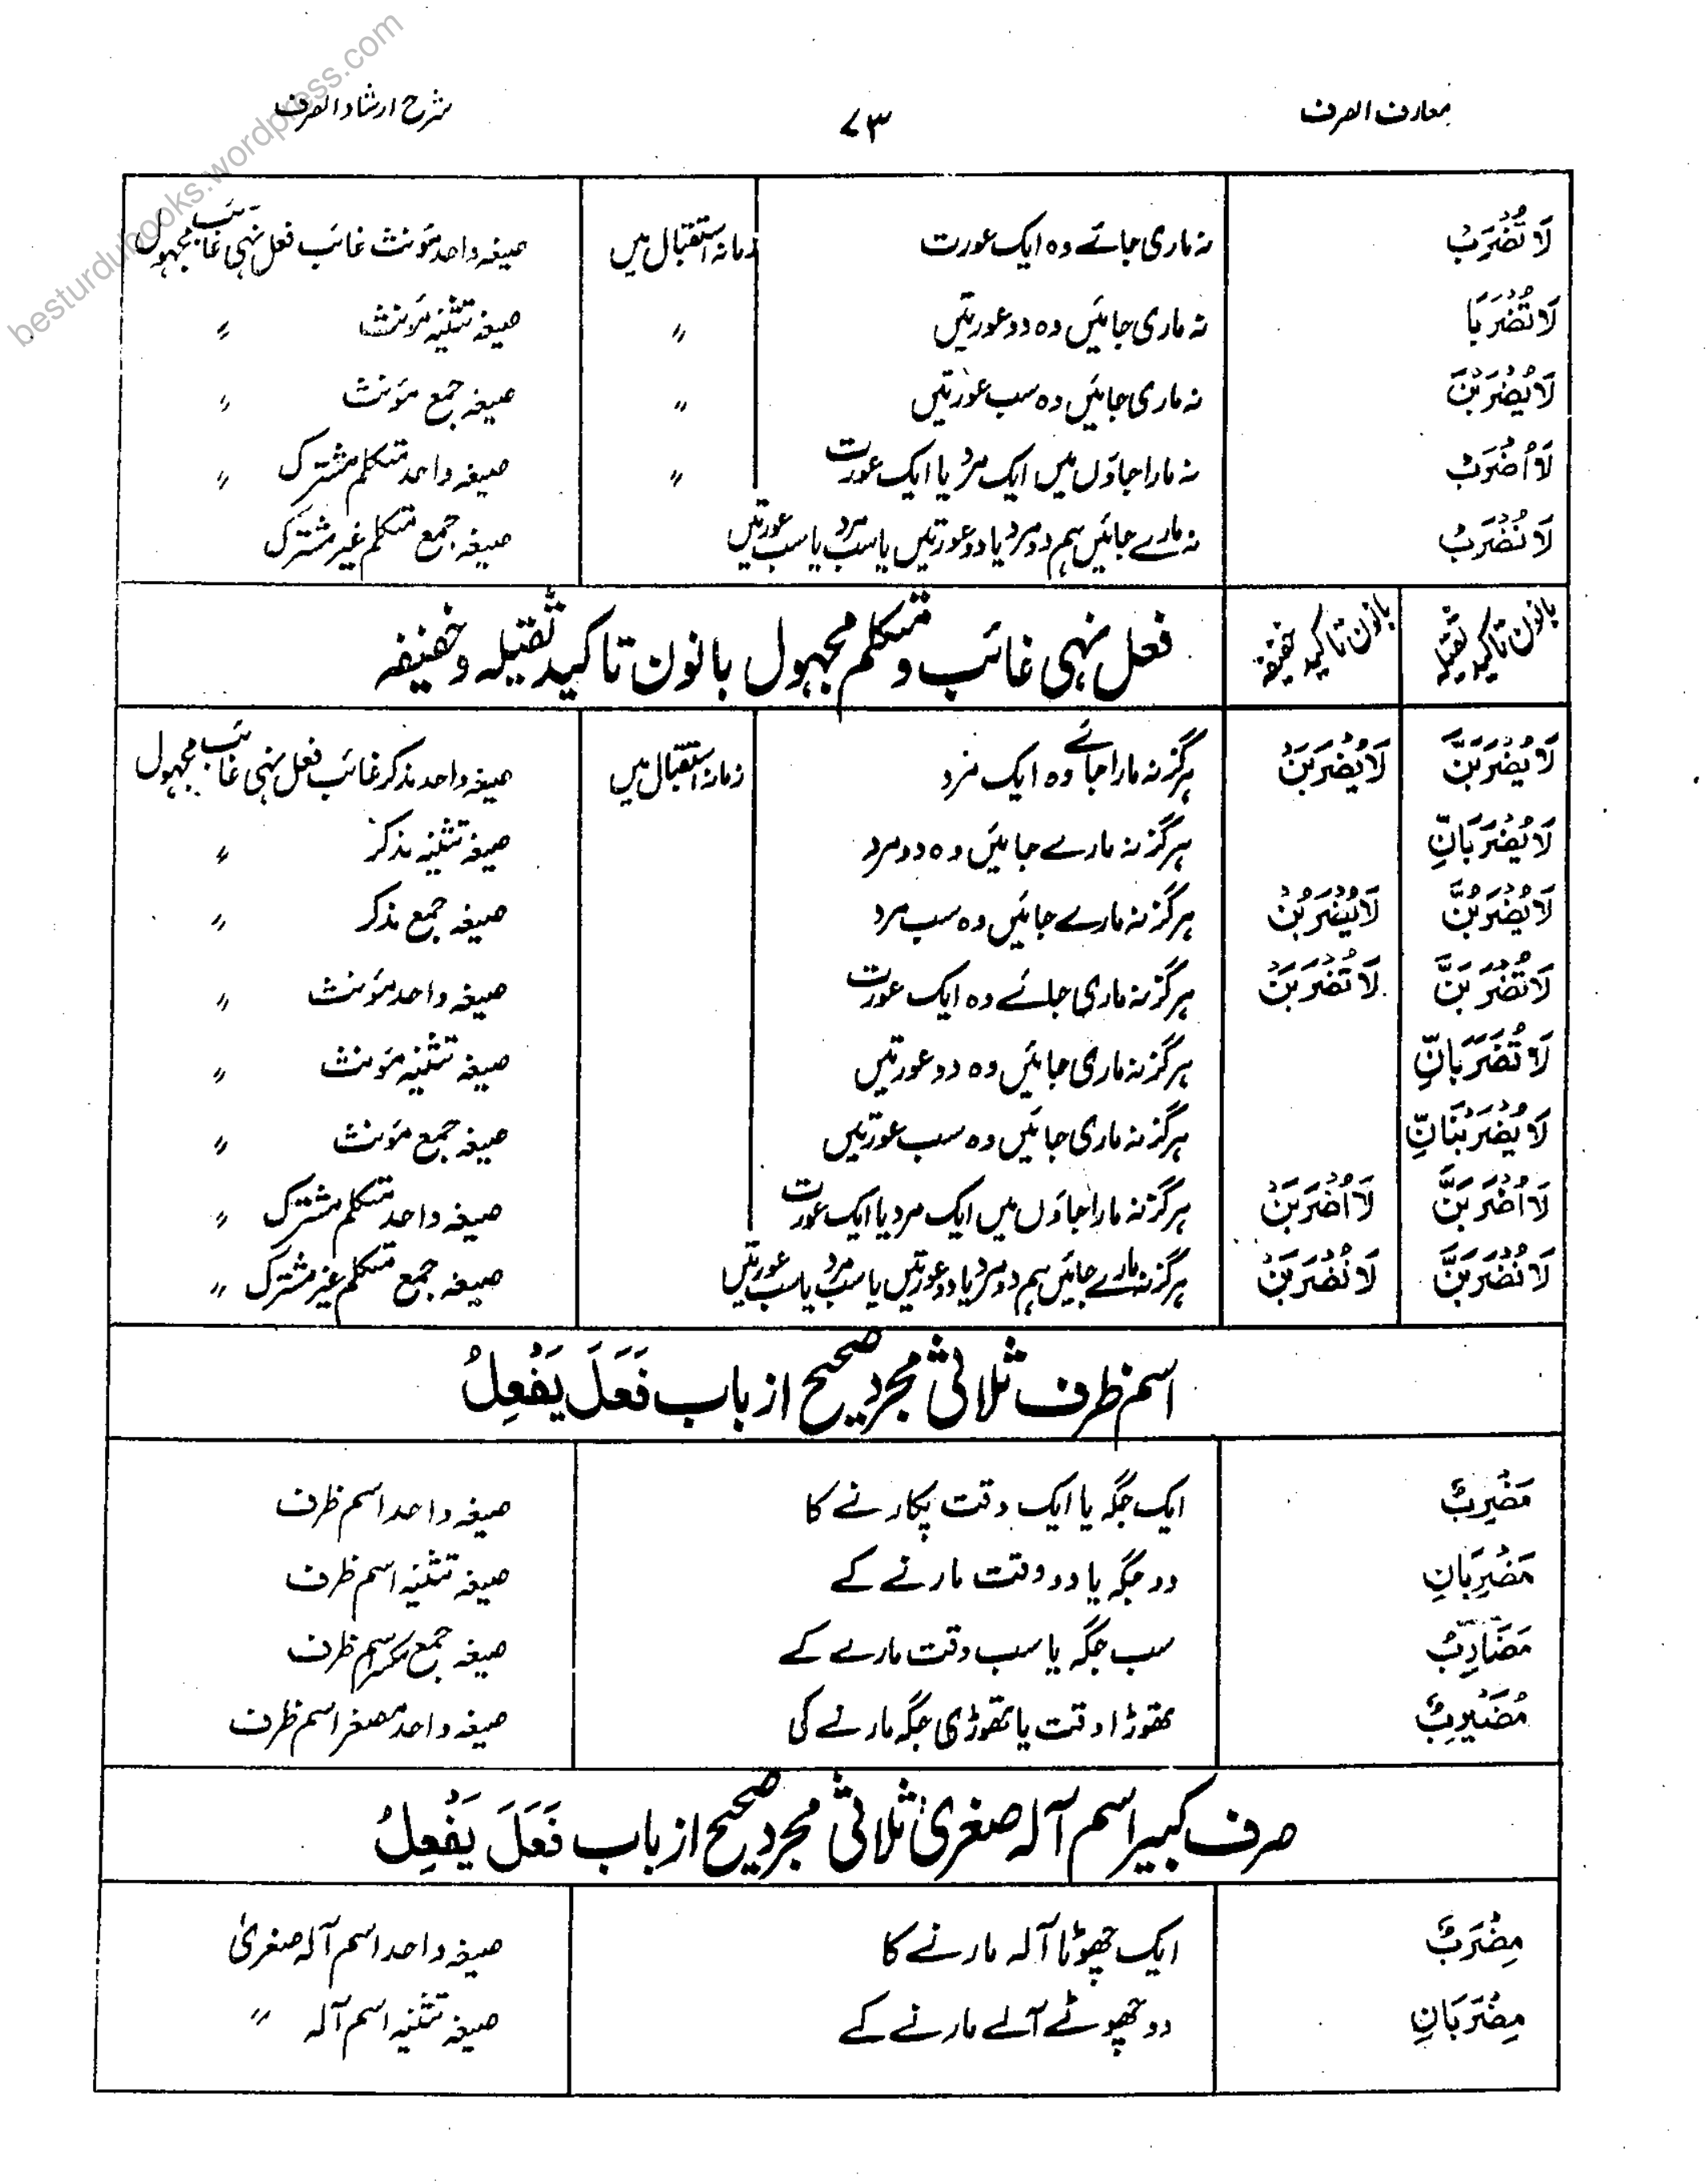 معارف الصرف ۷۳ شرح ارشاد الصرف
لَا تُضْرَبْ نہ ماری جائے وہ ایک عورت زمانہ استقبال میں صیغہ واحد مؤنث غائب فعل نہی غائب مجہول
لَا تُضْرَبَا نہ ماری جائیں وہ دو عورتیں 〃 صیغہ تثنیہ مؤنث 〃
لَا يُضْرَبْنَ نہ ماری جائیں وہ سب عورتیں 〃 صیغہ جمع مؤنث 〃
لَا اُضْرَبْ نہ مارا جاؤں میں ایک مرد یا ایک عورت 〃 صیغہ واحد متکلم مشترک 〃
لَا نُضْرَبْ نہ مارے جائیں ہم دو مرد یا دو عورتیں یا سب مرد یا سب عورتیں صیغہ جمع متکلم غیر مشترک
بانون تاکید ثقیلہ بانون تاکید خفیفہ فعل نہی غائب و متکلم مجہول بانون تاکید ثقیلہ و خفیفہ
لَا يُضْرَبَنَّ لَا يُضْرَبَنْ ہرگز نہ مارا جائے وہ ایک مرد زمانہ استقبال میں صیغہ واحد مذکر غائب فعل نہی غائب مجہول
لَا يُضْرَبَانِّ ہرگز نہ مارے جائیں وہ دو مرد صیغہ تثنیہ مذکر 〃
لَا يُضْرَبُنَّ لَا يُضْرَبُنْ ہرگز نہ مارے جائیں وہ سب مرد صیغہ جمع مذکر 〃
لَا تُضْرَبَنَّ لَا تُضْرَبَنْ ہرگز نہ ماری جائے وہ ایک عورت صیغہ واحد مؤنث 〃
لَا تُضْرَبَانِّ ہرگز نہ ماری جائیں وہ دو عورتیں صیغہ تثنیہ مؤنث 〃
لَا يُضْرَبْنَانِّ ہرگز نہ ماری جائیں وہ سب عورتیں صیغہ جمع مؤنث 〃
لَا اُضْرَبَنَّ لَا اُضْرَبَنْ ہرگز نہ مارا جاؤں میں ایک مرد یا ایک عورت صیغہ واحد متکلم مشترک 〃
لَا نُضْرَبَنَّ لَا نُضْرَبَنْ ہرگز نہ مارے جائیں ہم دو مرد یا دو عورتیں یا سب مرد یا سب عورتیں صیغہ جمع متکلم غیر مشترک 〃
اسم ظرف ثلاثی مجرد صحیح از باب فَعَلَ يَفْعِلُ
مَضْرِبٌ ایک جگہ یا ایک وقت پکارنے کا صیغہ واحد اسم ظرف
مَضْرِبَانِ دو جگہ یا دو وقت مارنے کے صیغہ تثنیہ اسم ظرف
مَضَارِبُ سب جگہ یا سب وقت مارے کے صیغہ جمع مکسر اسم ظرف
مُضَيْرِبٌ تھوڑا وقت یا تھوڑی جگہ مارنے کی صیغہ واحد مصغر اسم ظرف
صرف کبیر اسم آلہ صغریٰ ثلاثی مجرد صحیح از باب فَعَلَ يَفْعِلُ
مِضْرَبٌ ایک چھوٹا آلہ مارنے کا صیغہ واحد اسم آلہ صغریٰ
مِضْرَبَانِ دو چھوٹے آلے مارنے کے صیغہ تثنیہ اسم آلہ 〃
besturdubooks.wordpress.com